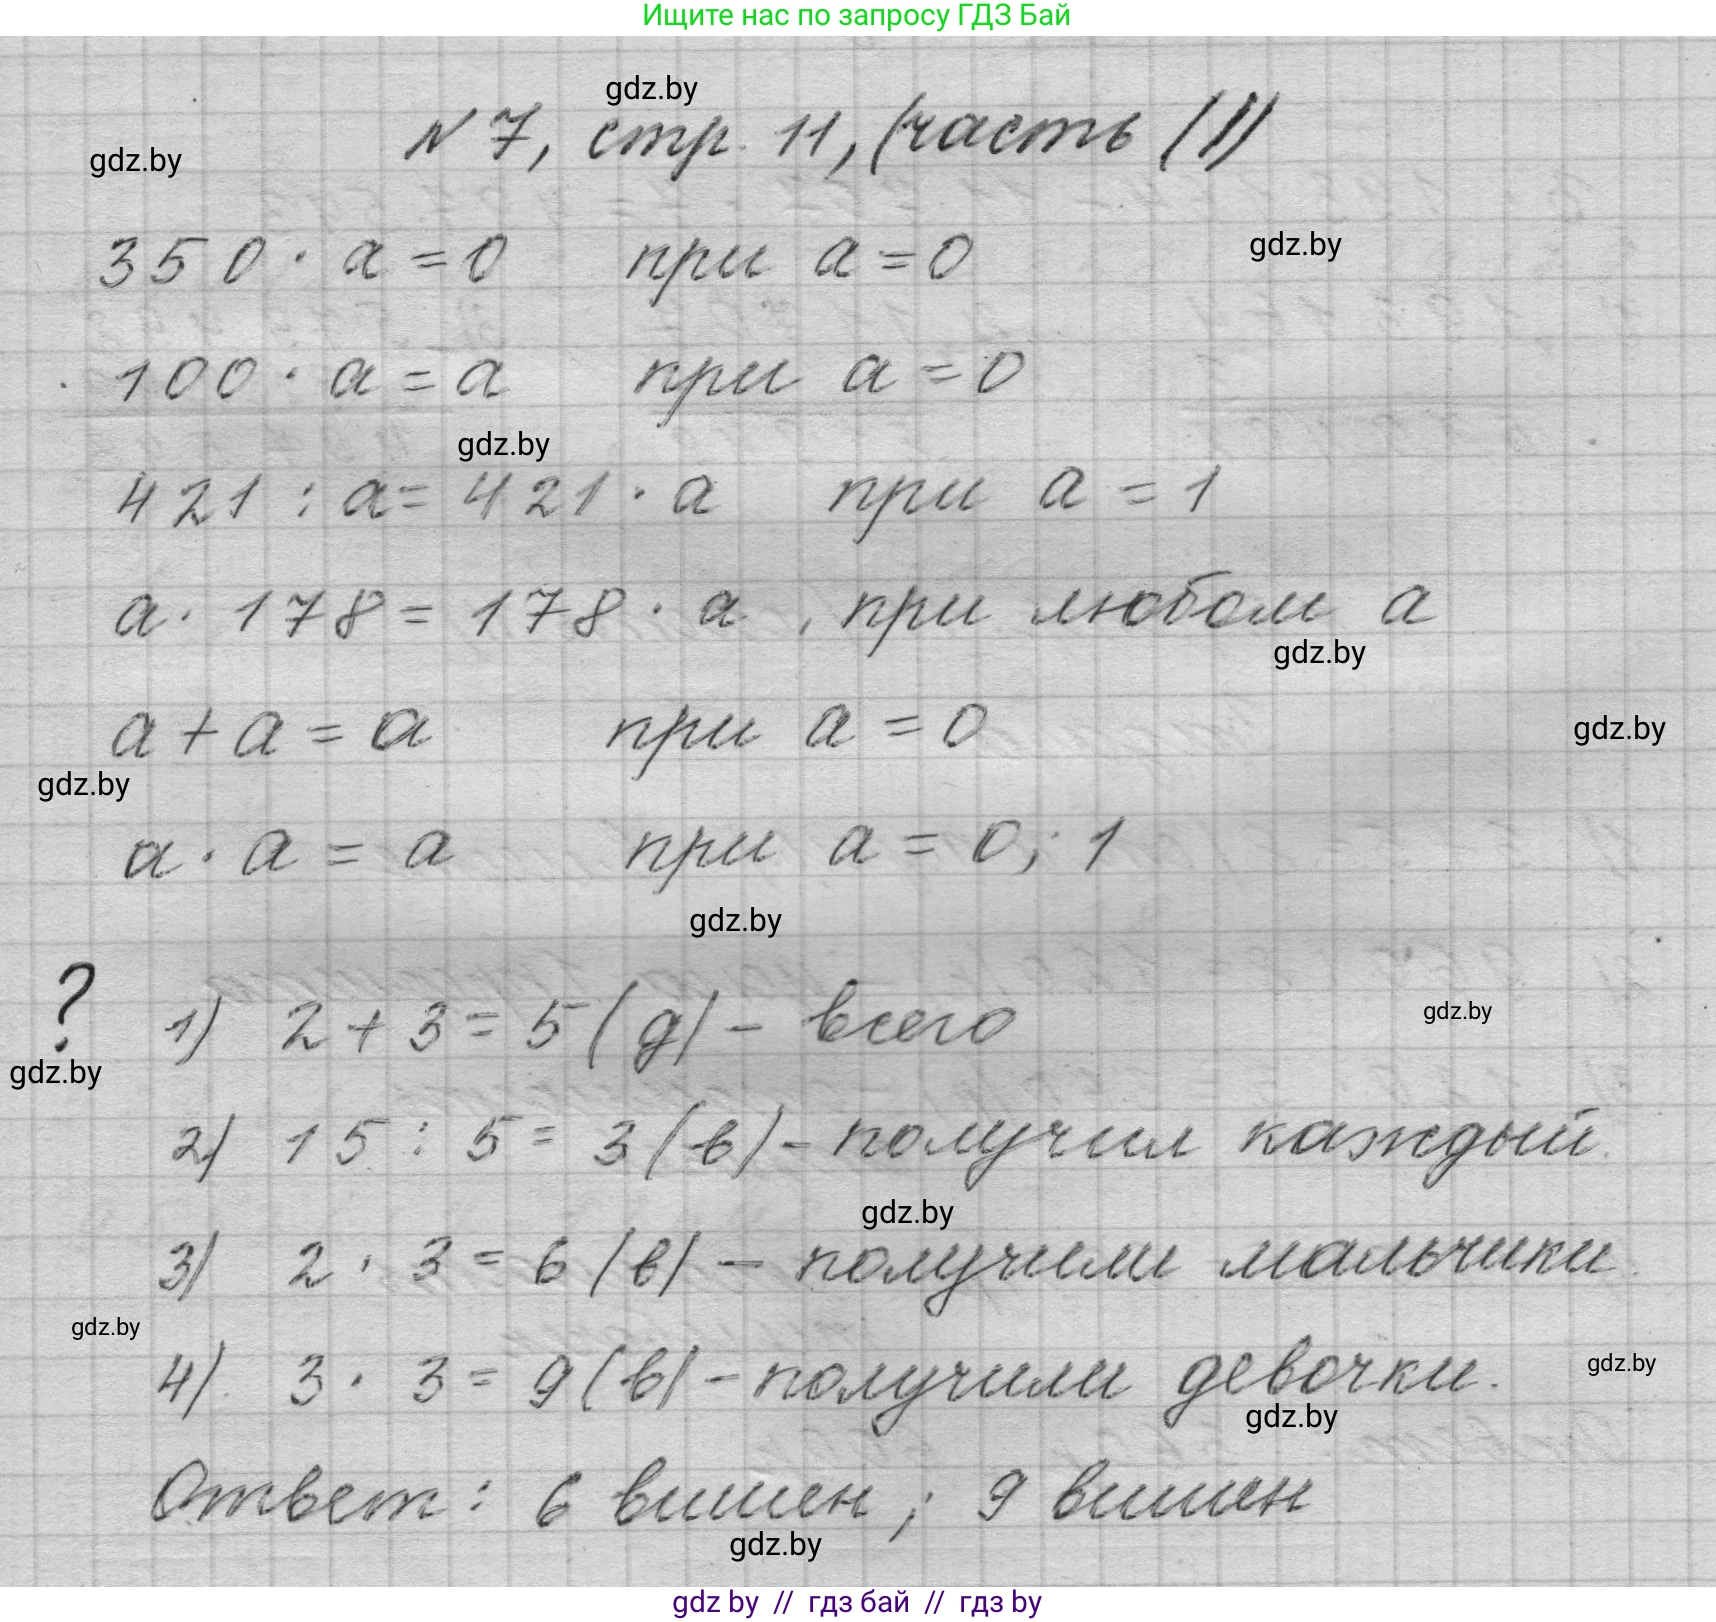 Ищите нас по запросу ГДЗ Бай
gdz.by
N 7, стр. 11, (часть II)
gdz.by
350 · a = 0 при a = 0
gdz.by
100 · a = a при a = 0
gdz.by
421 : a = 421 · a при a = 1
a · 178 = 178 · a, при любом a
gdz.by
a + a = a при a = 0
gdz.by
gdz.by
a · a = a при a = 0; 1
gdz.by
? 1) 2 + 3 = 5 (д) - всего
gdz.by
gdz.by
2) 15 : 5 = 3 (в) - получил каждый.
gdz.by
3) 2 · 3 = 6 (в) - получили мальчики.
gdz.by
4) 3 · 3 = 9 (в) - получили девочки.
gdz.by
gdz.by
Ответ: 6 вишен; 9 вишен
gdz.by
gdz by // гдз бай // гдз by